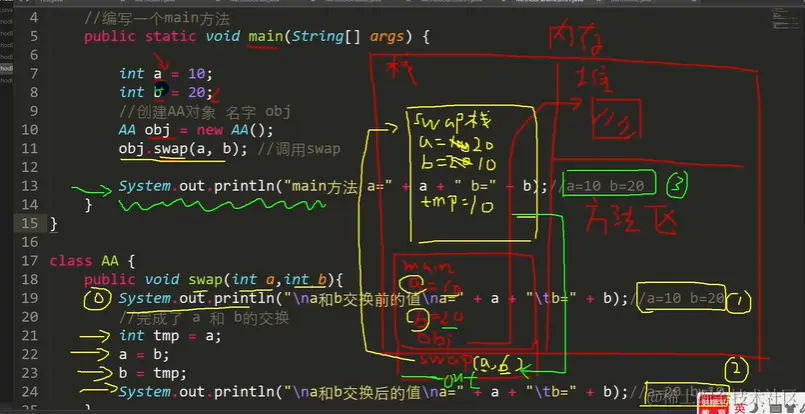 4 //编写一个main方法
5 public static void main(String[] args) {
6
7 int a = 10;
8 int b = 20;
9 //创建AA对象 名字 obj
10 AA obj = new AA();
11 obj.swap(a, b); //调用swap
12
13 System.out.println("main方法 a=" + a + " b=" + b);//a=10 b=20 ③
14 }
15 }
16
17 class AA {
18 public void swap(int a,int b){
19 System.out.println("\na和b交换前的值\na=" + a + "\tb=" + b);//a=10 b=20 ①
20 //完成了 a 和 b的交换
21 int tmp = a;
22 a = b;
23 b = tmp;
24 System.out.println("\na和b交换后的值\na=" + a + "\tb=" + b);//a=20 b=10 ②
内存
栈
堆
swap栈
a=20
b=10
tmp=10
方法区
main
a=10
b=20
obj
swap(a,b)
out
英